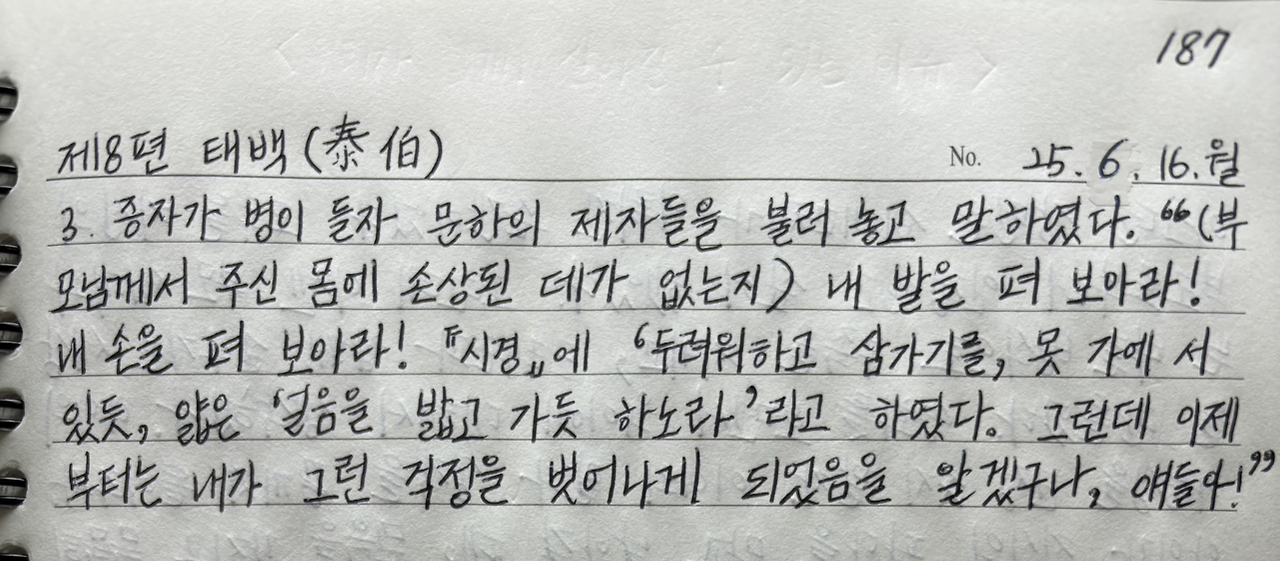 187
제8편 태백(泰伯) No. 25.6.16.월
3. 증자가 병이 들자 문하의 제자들을 불러 놓고 말하였다. "(부
모님께서 주신 몸에 손상된 데가 없는지) 내 발을 펴 보아라!
내 손을 펴 보아라! 『시경』에 '두려워하고 삼가기를, 못 가에 서
있듯, 얇은 얼음을 밟고 가듯 하노라'라고 하였다. 그런데 이제
부터는 내가 그런 걱정을 벗어나게 되었음을 알겠구나, 얘들아!"